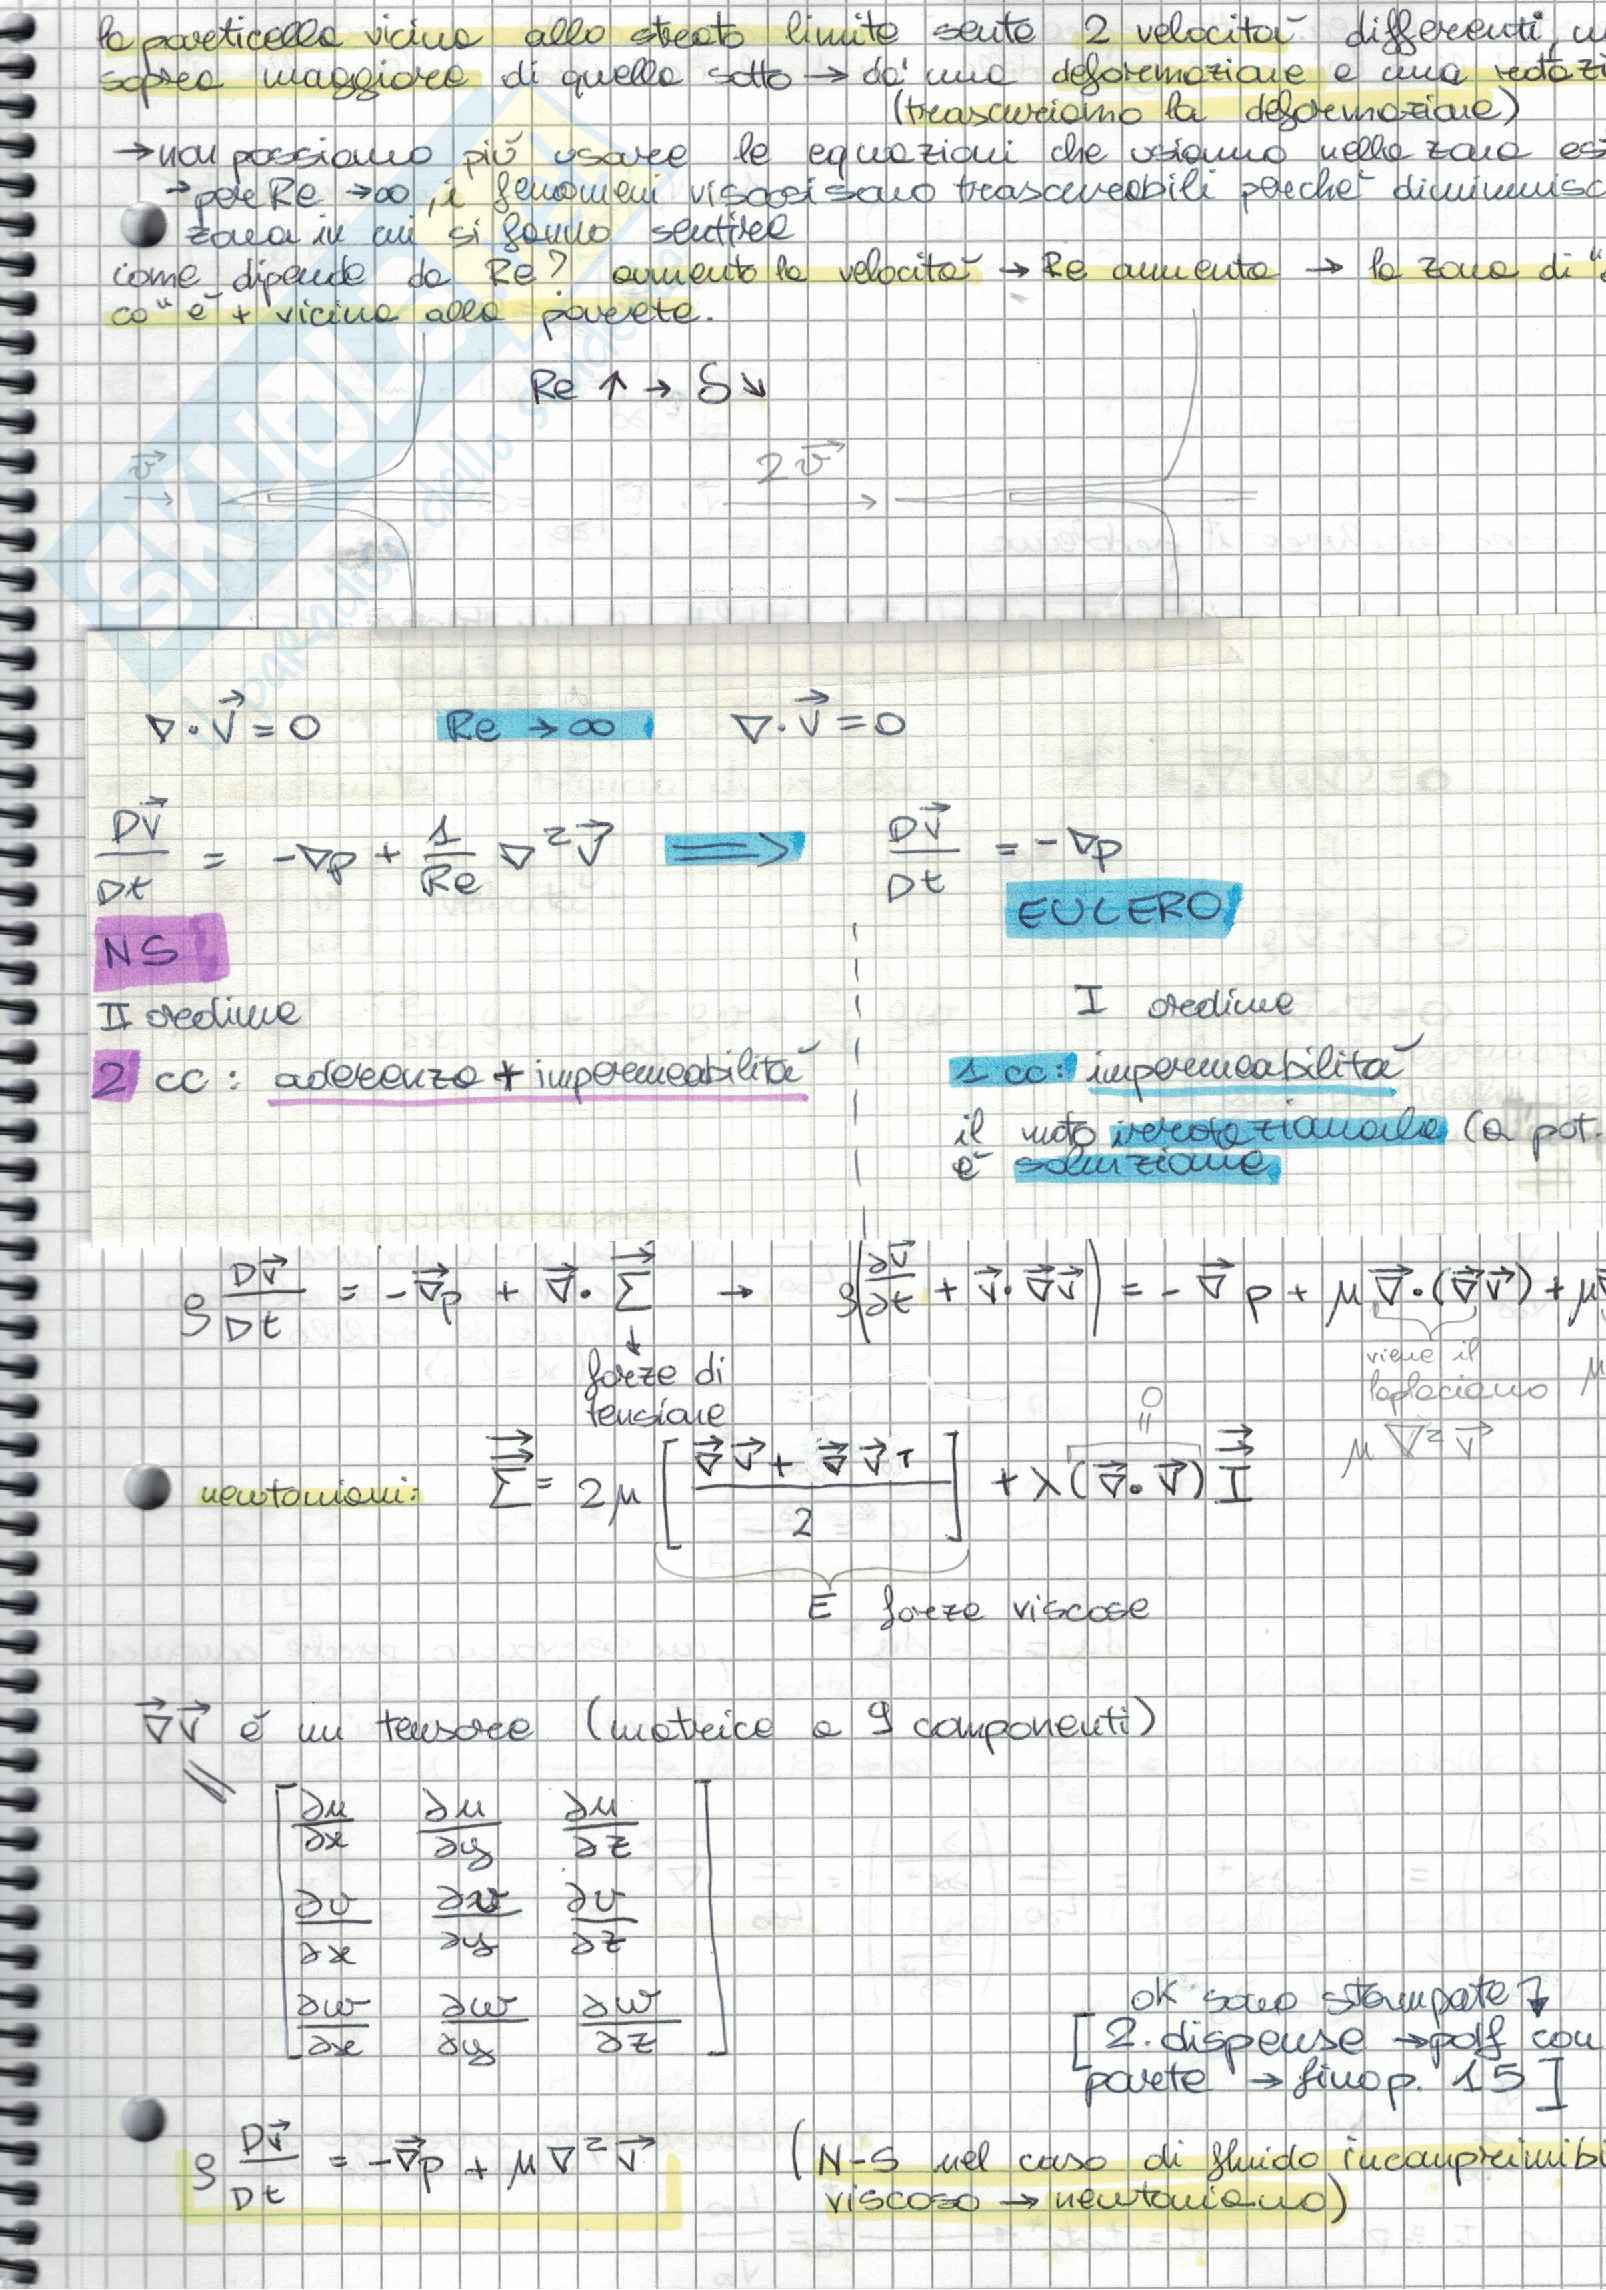 la particella vicina allo strato limite sente 2 velocità differenti,
sopra maggiore di quella sotto → dà una deformazione e una
(trascuriamo la deformazione)
→ non possiamo più usare le equazioni che usiamo nella zona
→ per Re → ∞, i fenomeni viscosi sono trascurabili perché
zona in cui si fanno sentire
come dipende da Re? aumento la velocità → Re aumenta → la zona di
è + vicina alla parete.
Re ↑ → δ ↘
v⃗ 2v⃗
SKUOLA
il paradiso dello studente
∇·V⃗ = 0 Re → ∞ ∇·V⃗ = 0
DV⃗/Dt = -∇p + 1/Re ∇²V⃗ ⟹ DV⃗/Dt = -∇p
EULERO
NS
II ordine I ordine
2 cc: aderenza + impermeabilità 1 cc: impermeabilità
il moto irrotazionale (a pot.
è soluzione
ρ Dv⃗/Dt = -∇⃗p + ∇⃗·Σ⃗ → ρ(∂v⃗/∂t + v⃗·∇⃗v⃗) = -∇⃗p + μ∇⃗·(∇⃗v⃗) + μ
forze di
tensione
viene il
laplaciano
μ∇²v⃗
newtoniani: Σ⃗⃗ = 2μ[(∇⃗v⃗ + ∇⃗v⃗ᵀ)/2] + λ(∇⃗·v⃗)I⃗⃗
= 0
E forze viscose
∇⃗v⃗ è un tensore (matrice a 9 componenti)
=
∂u/∂x ∂u/∂y ∂u/∂z
∂v/∂x ∂v/∂y ∂v/∂z
∂w/∂x ∂w/∂y ∂w/∂z
ok sono stampate ↴
[2. dispense → pdf con
parete → fino p. 15]
ρ Dv⃗/Dt = -∇⃗p + μ∇²v⃗ (N-S nel caso di fluido
viscoso → newtoniano)